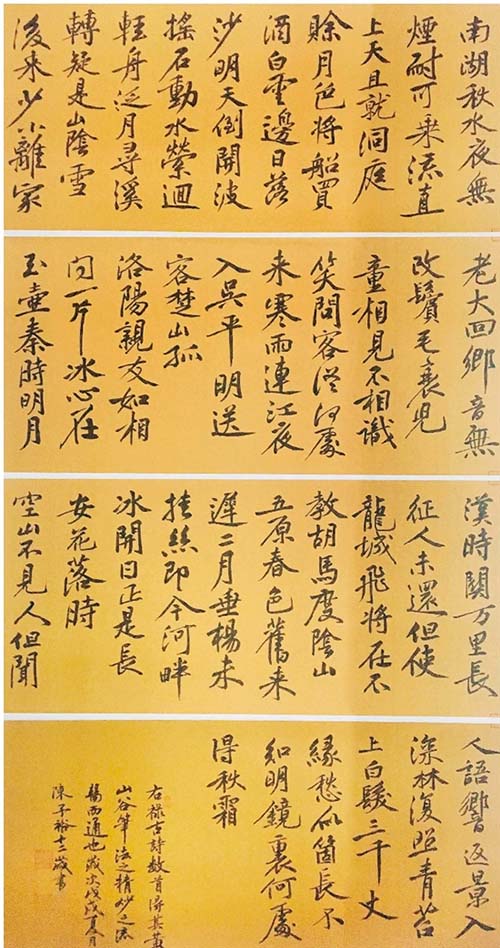 南湖秋水夜無
煙耐可乗流直
上天且就洞庭
賒月色將船買
酒白雲邊日落
沙明天倒開波
搖石動水縈迴
輕舟泛月尋溪
轉疑是山陰雪
後来少小離家
老大回鄉音無
改鬢毛衰兒
童相見不相識
笑問客從何處
来寒雨連江夜
入吳平明送
客楚山孤
洛陽親友如相
問一片冰心在
玉壺秦時明月
漢時關万里長
征人未還但使
龍城飛將在不
教胡馬度陰山
五原春色舊来
遲二月垂楊未
挂絲即今河畔
冰開日正是長
安花落時
空山不見人但聞
人語響返景入
深林復照青苔
上白髮三千丈
緣愁似箇長不
知明鏡裏何處
得秋霜
右録古詩数首其黃
山谷筆法之精妙之流
暢而通也歲次戊戌夏月
陳子裕十二歲書